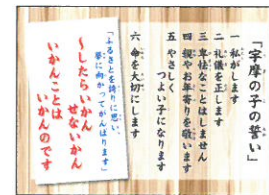 「宇摩の子の誓い」
一 私がします
二 礼儀を正します
三 卑怯なことはしません
四 親やお年寄りを敬います
五 やさしく
つよい子になります
六 命を大切にします
「ふるさとを誇りに思い、
夢に向かってがんばります」
～したらいかん
せないかん
いかんことは
いかんのです